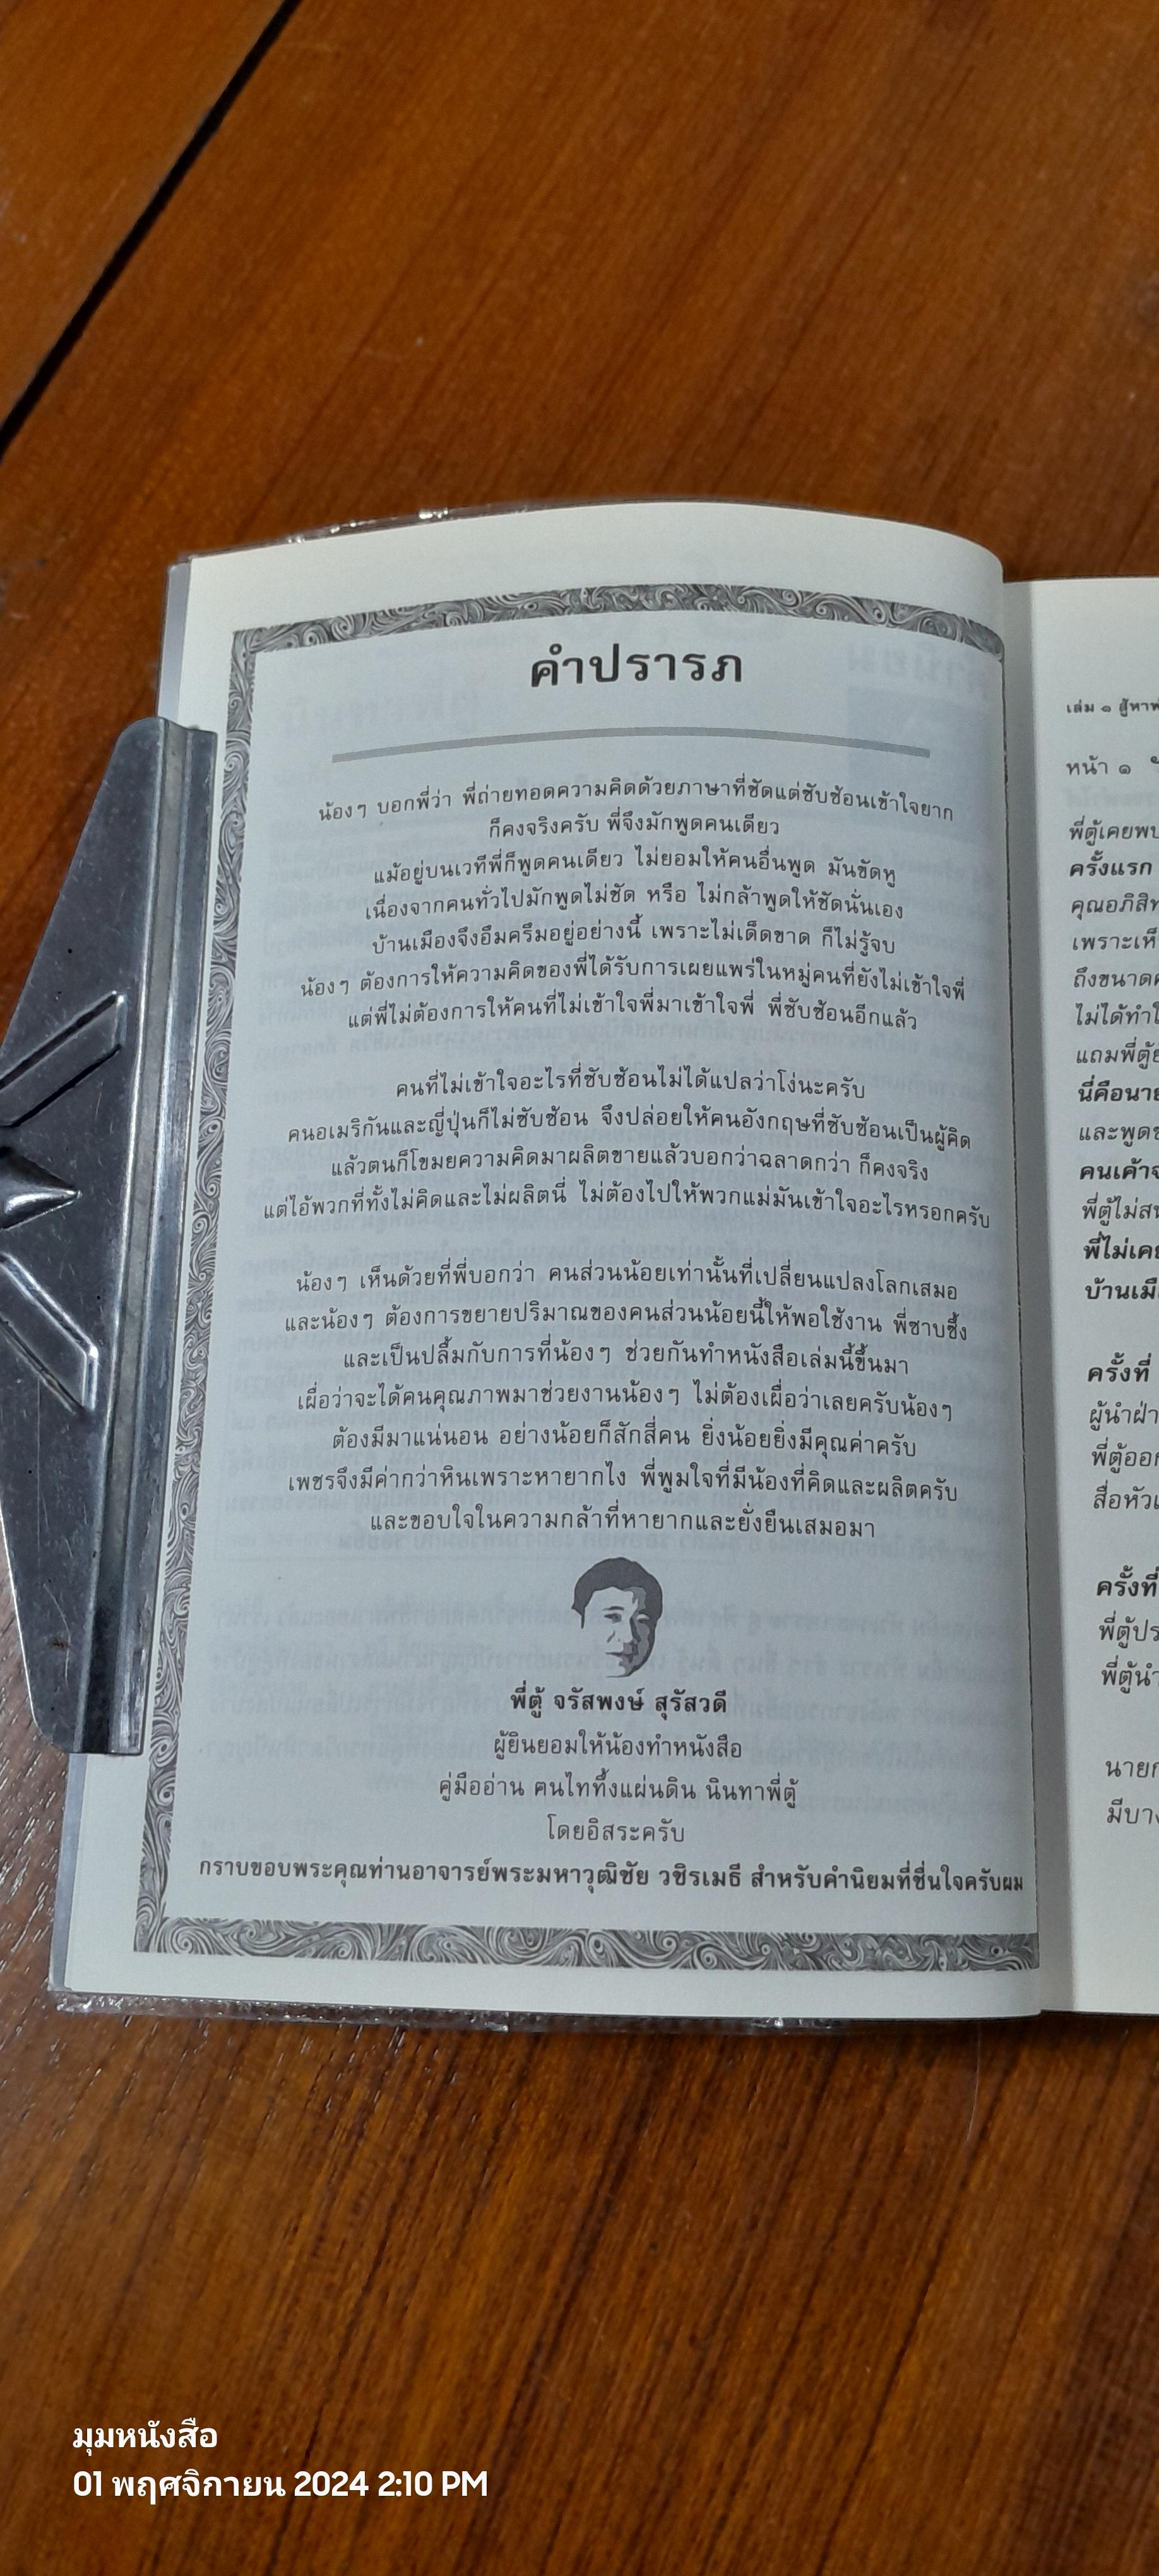 คำปรารภ
น้องๆ บอกพี่ว่า พี่ถ่ายทอดความคิดด้วยภาษาที่ชัดแต่ซับซ้อนเข้าใจยาก
ก็คงจริงครับ พี่จึงมักพูดคนเดียว
แม้อยู่บนเวทีพี่ก็พูดคนเดียว ไม่ยอมให้คนอื่นพูด มันขัดหู
เนื่องจากคนทั่วไปมักพูดไม่ชัด หรือ ไม่กล้าพูดให้ชัดนั่นเอง
บ้านเมืองจึงอึมครึมอยู่อย่างนี้ เพราะไม่เด็ดขาด ก็ไม่รู้จบ
น้องๆ ต้องการให้ความคิดของพี่ได้รับการเผยแพร่ในหมู่คนที่ยังไม่เข้าใจพี่
แต่พี่ไม่ต้องการให้คนที่ไม่เข้าใจพี่มาเข้าใจพี่ พี่ซับซ้อนอีกแล้ว
คนที่ไม่เข้าใจอะไรที่ซับซ้อนไม่ได้แปลว่าโง่นะครับ
คนอเมริกันและญี่ปุ่นก็ไม่ซับซ้อน จึงปล่อยให้คนอังกฤษที่ซับซ้อนเป็นผู้คิด
แล้วตนก็โขมยความคิดมาผลิตขายแล้วบอกว่าฉลาดกว่า ก็คงจริง
แต่ไอ้พวกที่ทั้งไม่คิดและไม่ผลิตนี่ ไม่ต้องไปให้พวกแม่มันเข้าใจอะไรหรอกครับ
น้องๆ เห็นด้วยที่พี่บอกว่า คนส่วนน้อยเท่านั้นที่เปลี่ยนแปลงโลกเสมอ
และน้องๆ ต้องการขยายปริมาณของคนส่วนน้อยนี้ให้พอใช้งาน พี่ซาบซึ้ง
และเป็นปลื้มกับการที่น้องๆ ช่วยกันทำหนังสือเล่มนี้ขึ้นมา
เผื่อว่าจะได้คนคุณภาพมาช่วยงานน้องๆ ไม่ต้องเผื่อว่าเลยครับน้องๆ
ต้องมีมาแน่นอน อย่างน้อยก็สักสี่คน ยิ่งน้อยยิ่งมีคุณค่าครับ
เพชรจึงมีค่ากว่าหินเพราะหายากไง พี่พูมใจที่มีน้องที่คิดและผลิตครับ
และขอบใจในความกล้าที่หายากและยั่งยืนเสมอมา
พี่ตู้ จรัสพงษ์ สุรัสวดี
ผู้ยินยอมให้น้องทำหนังสือ
คู่มืออ่าน ฅนไททึ้งแผ่นดิน นินทาพี่ตู้
โดยอิสระครับ
กราบขอบพระคุณท่านอาจารย์พระมหาวุฒิชัย วชิรเมธี สำหรับคำนิยมที่ชื่นใจครับผม
เล่ม ๑
หน้า ๑
พี่ตู้เคยพบ
ครั้งแรก
เพราะเห็
ไม่ได้ทำ
แถมพี่ตู้
นี่คือนาย
คนเค้า
พี่ตู้ไม่
พี่ไม่เคย
ครั้งที่
ครั้งที่
มุมหนังสือ
01 พฤศจิกายน 2024 2:10 PM